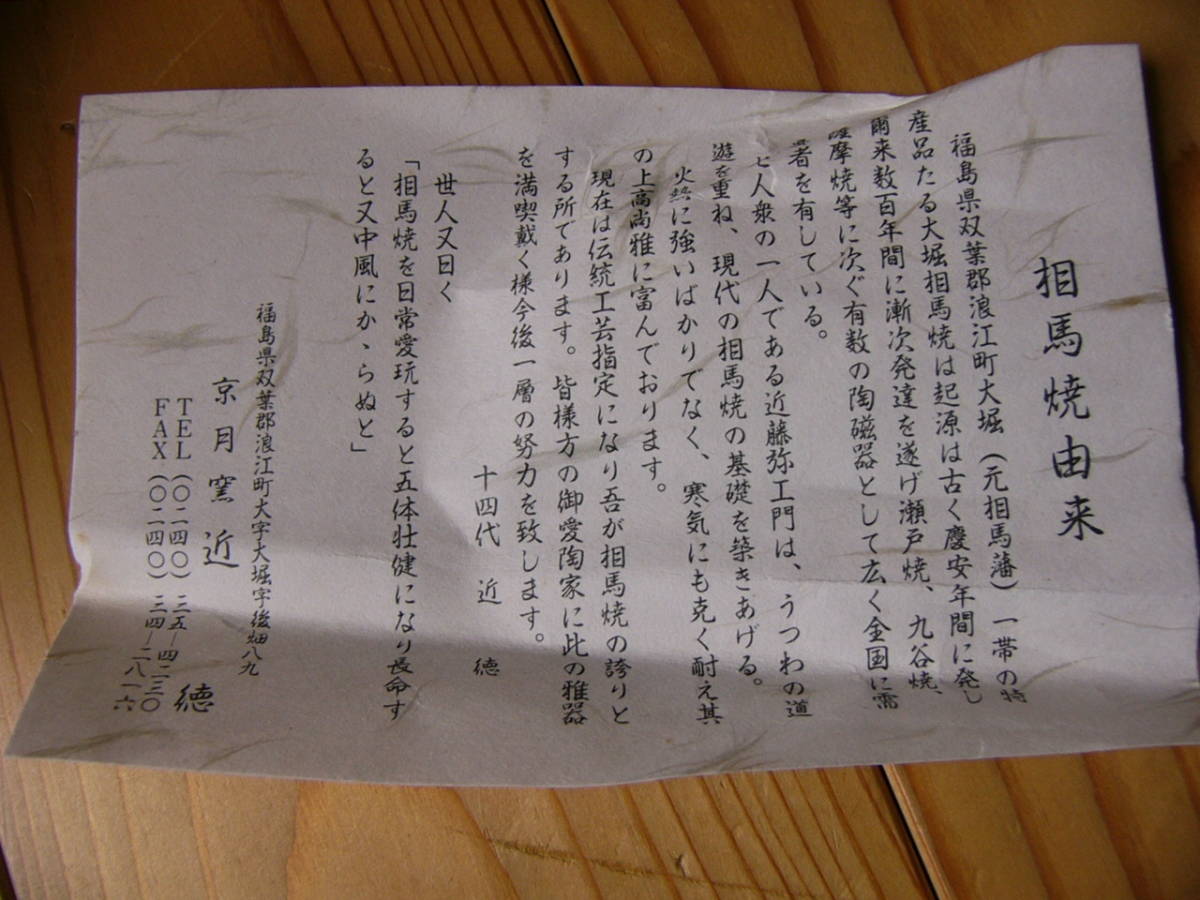 相馬焼由来
福島県双葉郡浪江町大堀（元相馬藩）一帯の特
産品たる大堀相馬焼は起源は古く慶安年間に発し
爾来数百年間に漸次発達を遂げ瀬戸焼、九谷焼、
薩摩焼等に次ぐ有数の陶磁器として広く全国に需
著を有している。
人衆の一人である近藤弥工門は、うつわの道
遊を重ね、現代の相馬焼の基礎を築きあげる。
火熱に強いばかりでなく、寒気にも克く耐え其
の上高尚雅に富んでおります。
現在は伝統工芸指定になり吾が相馬焼の誇りと
する所であります。皆様方の御愛陶家に此の雅器
を満喫戴く様今後一層の努力を致します。
十四代　近　徳
世人又曰く
「相馬焼を日常愛玩すると五体壮健になり長命す
ると又中風にかゝらぬと」
福島県双葉郡浪江町大字大堀字後畑八九
京月窯　近　徳
TEL（〇二四〇）三五―四二三〇
FAX（〇二四〇）三四―二八一六